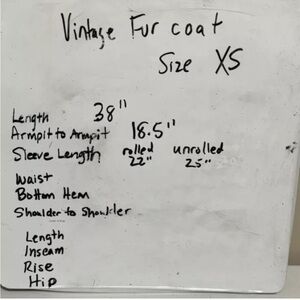 Vintage Fur coat
Size XS
Length 38"
Armpit to Armpit 18.5"
Sleeve Length rolled 22" unrolled 25"
Waist
Bottom Hem
Shoulder to Shoulder
Length
Inseam
Rise
Hip